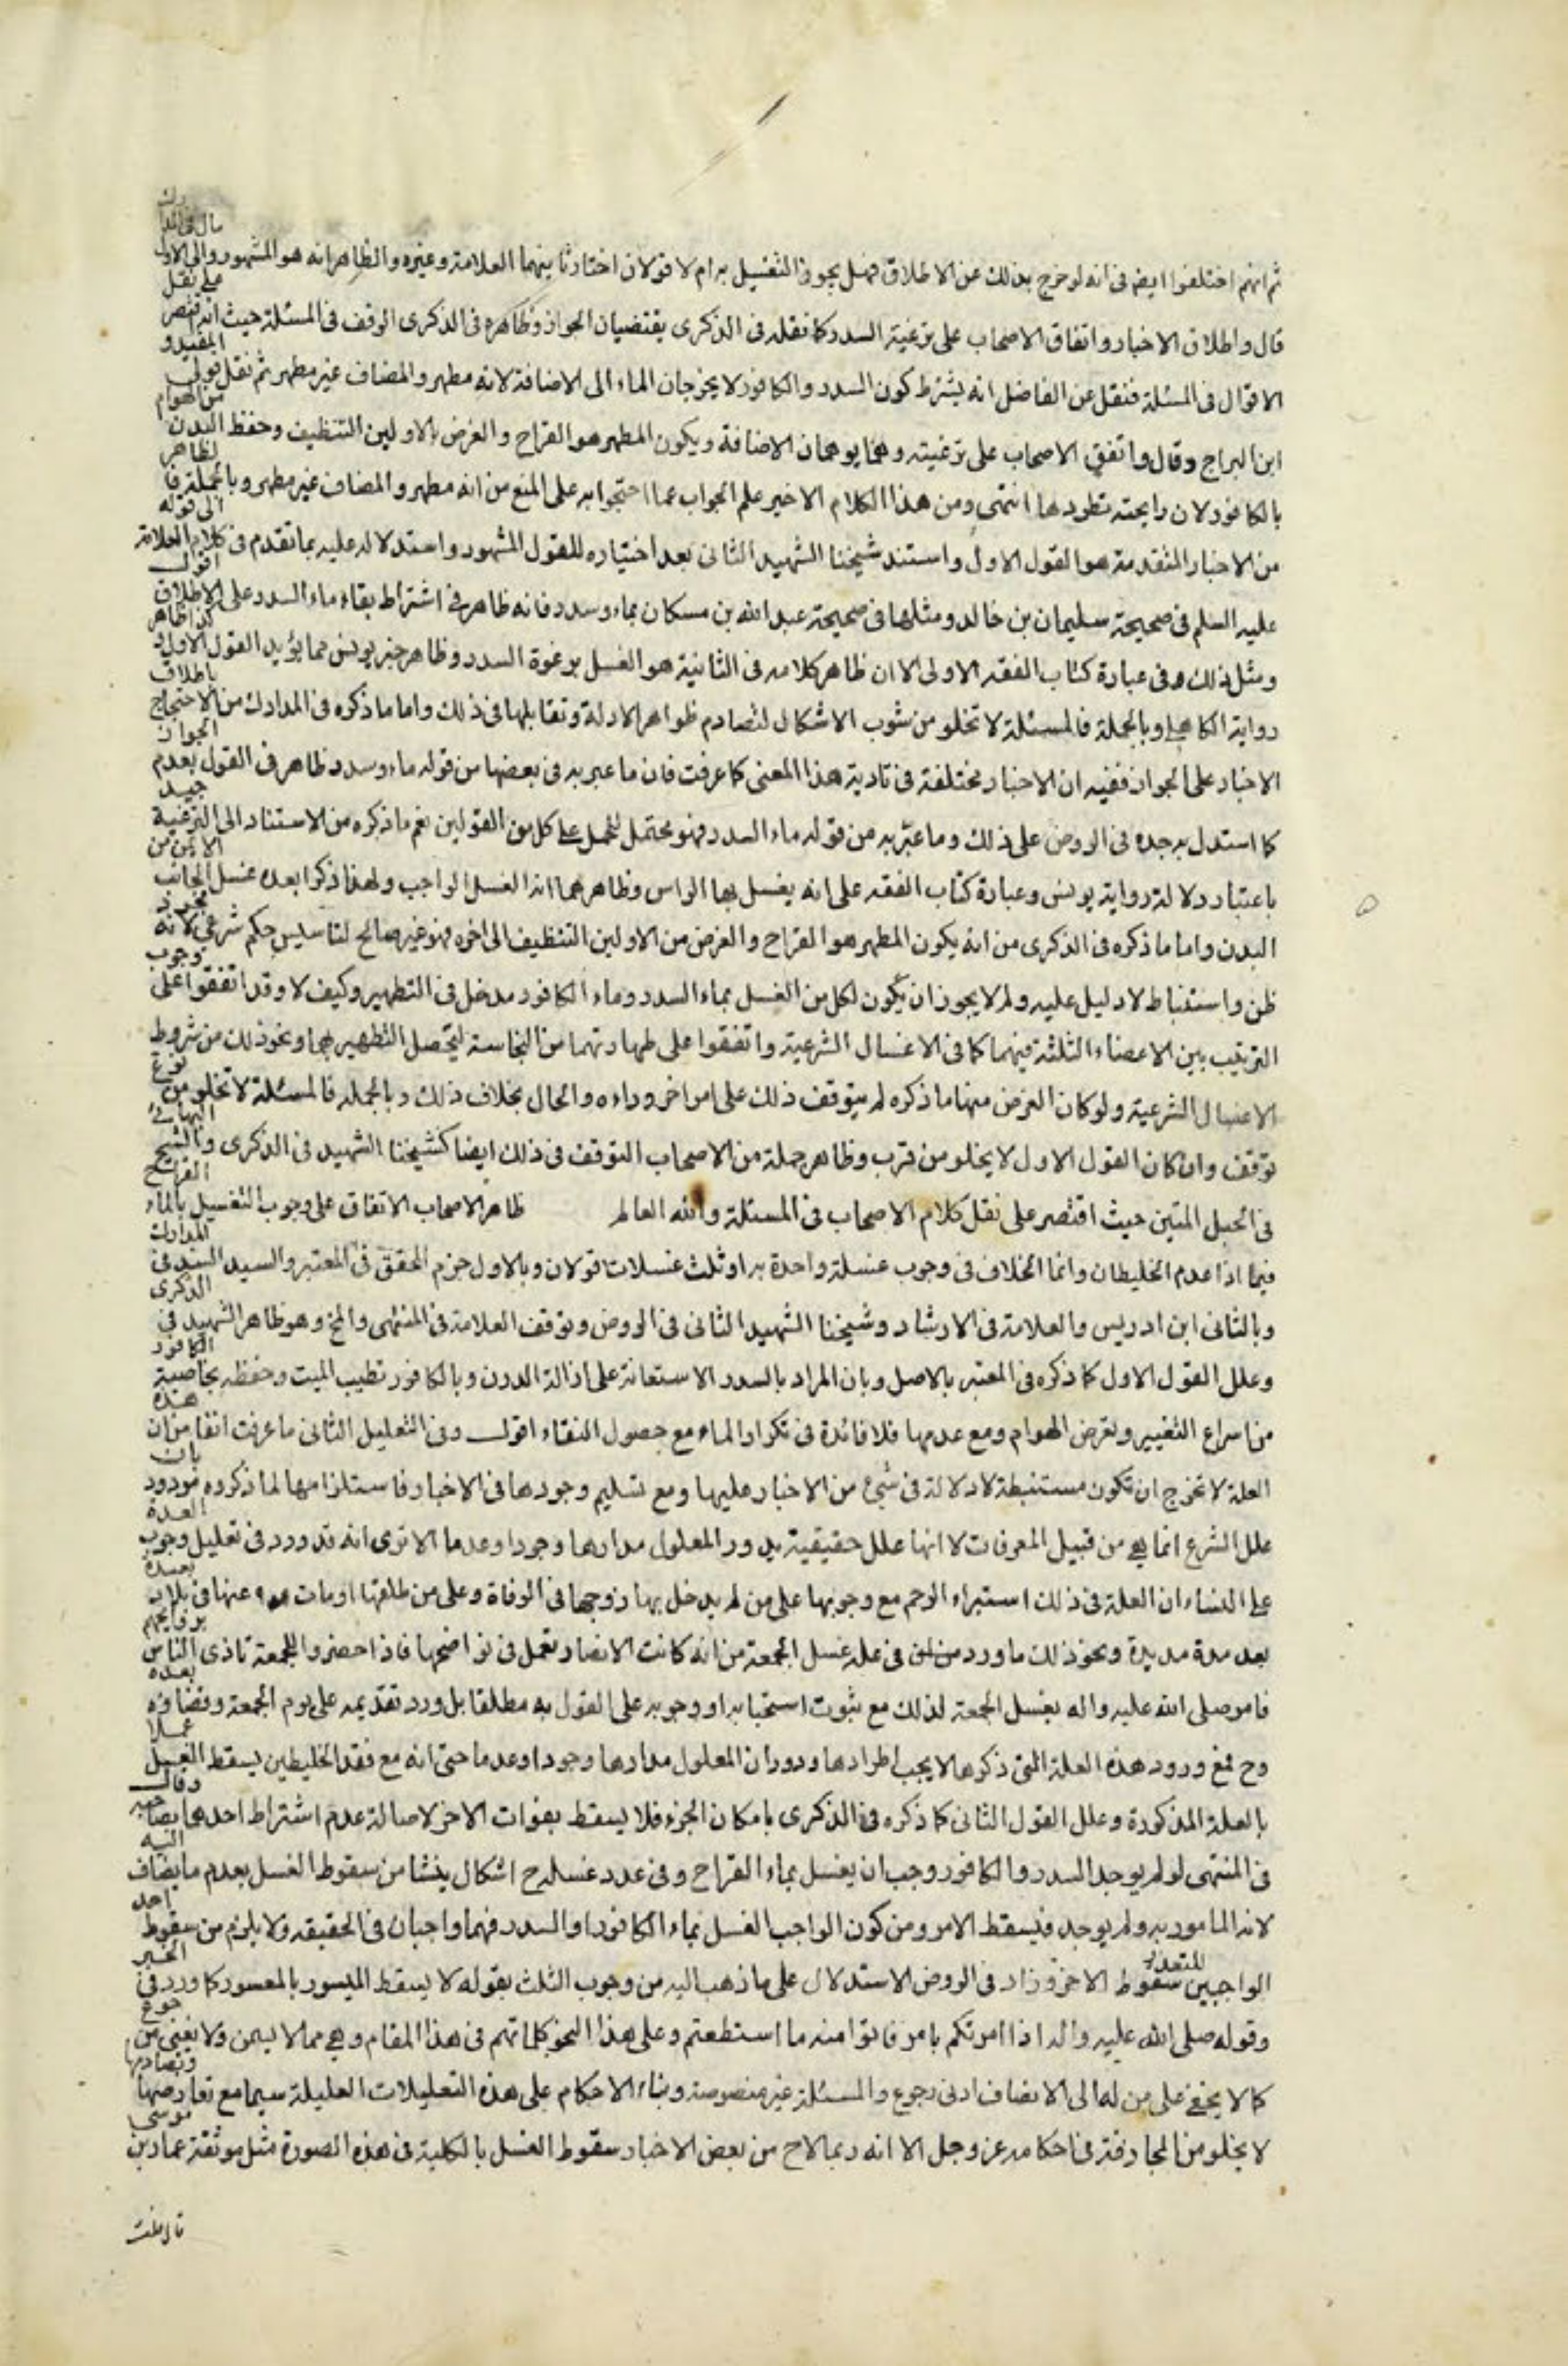 ثم انهم اختلفوا ايضا فى انه لو خرج بذلك عن الاطلاق فهل يجوز التغسيل به ام لا قولان اختار ثانيهما العلامة وغيره والظاهر انه هو المشهور والى الاول مال فى المدارك
قال واطلاق الاخبار واتفاق الاصحاب على ترغية السدر كما نقله فى الذكرى يقتضيان الجواز وظاهره فى الذكرى الوقف فى المسئلة حيث انه اقتصر على نقل
الاقوال فى المسئلة فنقل عن الفاضل انه يشترط كون السدر والكافور لا يخرجان الماء الى الاضافة لانه مطهر والمضاف غير مطهر ثم نقل قول المفيد و
ابن البراج وقال واتفق الاصحاب على ترغيته وهما يوهمان الاضافة ويكون المطهر هو القراح والغرض بالاولين التنظيف وحفظ البدن من الهوام
بالكافور لان رايحته تطردها انتهى ومن هذا الكلام الاخير علم الجواب عما احتجوا به على المنع من انه مطهر والمضاف غير مطهر وبالجملة فالظاهر
من الاخبار المتقدمة هو القول الاول واستند شيخنا الشهيد الثانى بعد اختياره للقول المشهور واستدلاله عليه بما تقدم فى كلام العلامة الى قوله
عليه السلم فى صحيحة سليمان بن خالد ومثلها فى صحيحة عبد الله بن مسكان بماء وسدر فانه ظاهر فى اشتراط بقاء ماء السدر على الاطلاق اقول
ومثل ذلك فى عبارة كتاب الفقه الاولى الا ان ظاهر كلامه فى الثانية هو الغسل برغوة السدر وظاهر خبر يونس مما يؤيد القول الاول وكذا ظاهر
رواية الكاهلي وبالجملة فالمسئلة لا تخلو من شوب الاشكال لتصادم ظواهر الادلة وتقابلها فى ذلك واما ما ذكره فى المدارك من الاحتجاج باطلاق
الاخبار على الجواز ففيه ان الاخبار مختلفة فى تادية هذا المعنى كما عرفت فان ما عبر به فى بعضها من قوله ماء وسدر ظاهر فى القول بعدم الجواز
كما استدل به جده فى الروض على ذلك وما عبّر به من قوله ماء السدر فهو محتمل للحمل على كل من القولين نعم ما ذكره من الاستناد الى الترغية جيد
باعتبار دلالة رواية يونس وعبارة كتاب الفقه على انه يغسل بها الراس وظاهرهما انه الغسل الواجب ولهذا ذكرا بعده غسل الجانب الايمن من
البدن واما ما ذكره فى الذكرى من انه يكون المطهر هو القراح والغرض من الاولين التنظيف الى اخره فهو غير صالح لتاسيس حكم شرعي لانه مجرد
ظن واستنباط لا دليل عليه ولم لا يجوز ان يكون لكل من الغسل بماء السدر وماء الكافور مدخل فى التطهير وكيف لا وقد اتفقوا على وجوب
الترتيب بين الاعضاء الثلثة فيهما كما فى الاغسال الشرعية واتفقوا على طهارتهما من النجاسة ليحصل التطهير بهما ونحو ذلك من شروط
الاغسال الشرعية ولو كان الغرض منهما ما ذكره لم يتوقف ذلك على امر اخر وراءه والحال بخلاف ذلك وبالجملة فالمسئلة لا تخلو من نوع
توقف وان كان القول الاول لا يخلو من قرب وظاهر جملة من الاصحاب التوقف فى ذلك ايضا كشيخنا الشهيد فى الذكرى والشيخ البهائي
فى الحبل المتين حيث اقتصر على نقل كلام الاصحاب فى المسئلة والله العالم ظاهر الاصحاب الاتفاق على وجوب التغسيل بالماء القراح
فيما اذا عدم الخليطان وانما الخلاف فى وجوب غسلة واحدة به او ثلث غسلات قولان وبالاول جزم المحقق فى المعتبر والسيد السند فى المدارك
وبالثانى ابن ادريس والعلامة فى الارشاد وشيخنا الشهيد الثانى فى الروض وتوقف العلامة فى المنتهى والمخ وهو ظاهر الشهيد فى الذكرى
وعلل القول الاول كما ذكره فى المعتبر بالاصل وبان المراد بالسدر الاستعانة على ازالة الدرن وبالكافور تطييب الميت وحفظه بخاصية الكافور
من اسراع التغيير وتعرض الهوام ومع عدمها فلا فائدة فى تكرار الماء مع حصول النقاء اقول وفى التعليل الثانى ما عرفت انفا من ان هذه
العلة لا تخرج ان تكون مستنبطة لا دلالة فى شئ من الاخبار عليها ومع تسليم وجودها فى الاخبار فاستلزامها لما ذكروه مردود بان
علل الشرع انما هي من قبيل المعرفات لا انها علل حقيقية يدور المعلول مدارها وجودا وعدما الا ترى انه قد ورد فى تعليل وجوب العدة
على النساء ان العلة فى ذلك استبراء الرحم مع وجوبها على من لم يدخل بها زوجها فى الوفاة وعلى من طلقها او مات عنها فى بلاد بعيدة
بعد مدة مديدة ونحو ذلك ما ورد فى علة غسل الجمعة من انه كانت الانصار تعمل فى نواضحها فاذا حضروا للجمعة تاذى الناس بروايحهم
فامر صلى الله عليه واله بغسل الجمعة لذلك مع ثبوت استحبابه او وجوبه على القول به مطلقا بل ورد تقديمه على يوم الجمعة وقضاؤه بعده
وح فمع ورود هذه العلة التى ذكرها لا يجب اطرادها ودوران المعلول مدارها وجودا وعدما حتى انه مع فقد الخليطين يسقط الغسل عملا
بالعلة المذكورة وعلل القول الثانى كما ذكره فى الذكرى بامكان الجزء فلا يسقط بفوات الاخر لاصالة عدم اشتراط احدهما بصاحبه وقال
فى المنتهى لو لم يوجد السدر والكافور وجب ان يغسل بماء القراح وفى عدد غسله ح اشكال ينشا من سقوط الغسل بعدم ما يضاف اليه
لانه المامور به ولم يوجد فيسقط الامر ومن كون الواجب الغسل بماء الكافور او السدر فهما واجبان فى الحقيقه ولا يلزم من سقوط احد
الواجبين للتعذر سقوط الاخر وزاد فى الروض الاستدلال على ما ذهب اليه من وجوب الثلث بقوله لا يسقط الميسور بالمعسور كما ورد فى الخبر
وقوله صلى الله عليه واله اذا امرتكم بامر فاتوا منه ما استطعتم وعلى هذا النحو كلماتهم فى هذا المقام وهي مما لا يسمن ولا يغنى من جوع
كما لا يخفى على من له الى الانصاف ادنى رجوع والمسئلة غير منصوصة وبناء الاحكام على هذه التعليلات العليلة سيما مع تعارضها وتصادمها
لا يخلو من المجازفة فى احكامه عز وجل الا انه ربما لاح من بعض الاخبار سقوط الغسل بالكلية فى هذه الصورة مثل موثقة عمار بن موسى
قال قلت